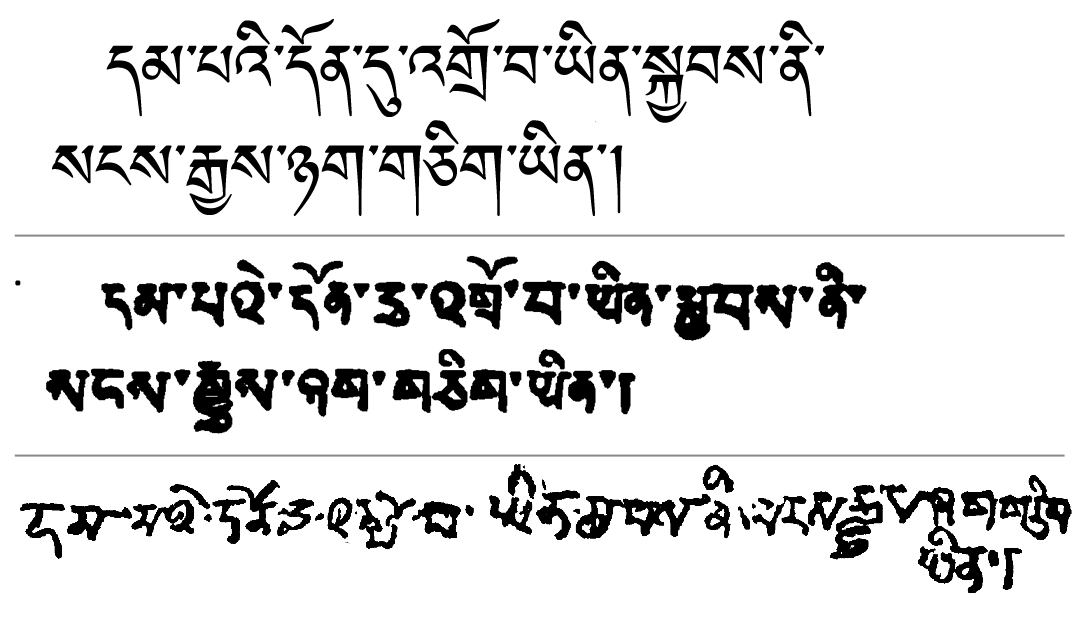 དམ་པའི་དོན་དུ་འགྲོ་བ་ཡིན་སྐྱབས་ནི་
སངས་རྒྱས་ཉག་གཅིག་ཡིན་།
དམ་པའེ་དོན་དུ་འགྲོ་བ་ཡིན་སྐྱབས་ནི་
སངས་རྒྱས་ཉག་གཅིག་ཡིན་།
དམ་པའེ་དོན་དུ་འགྲོ་བ་ ཡིན་སྐྱབས་ནི་སངས་རྒྱས་ཉག་གཅིག
ཡིན་།